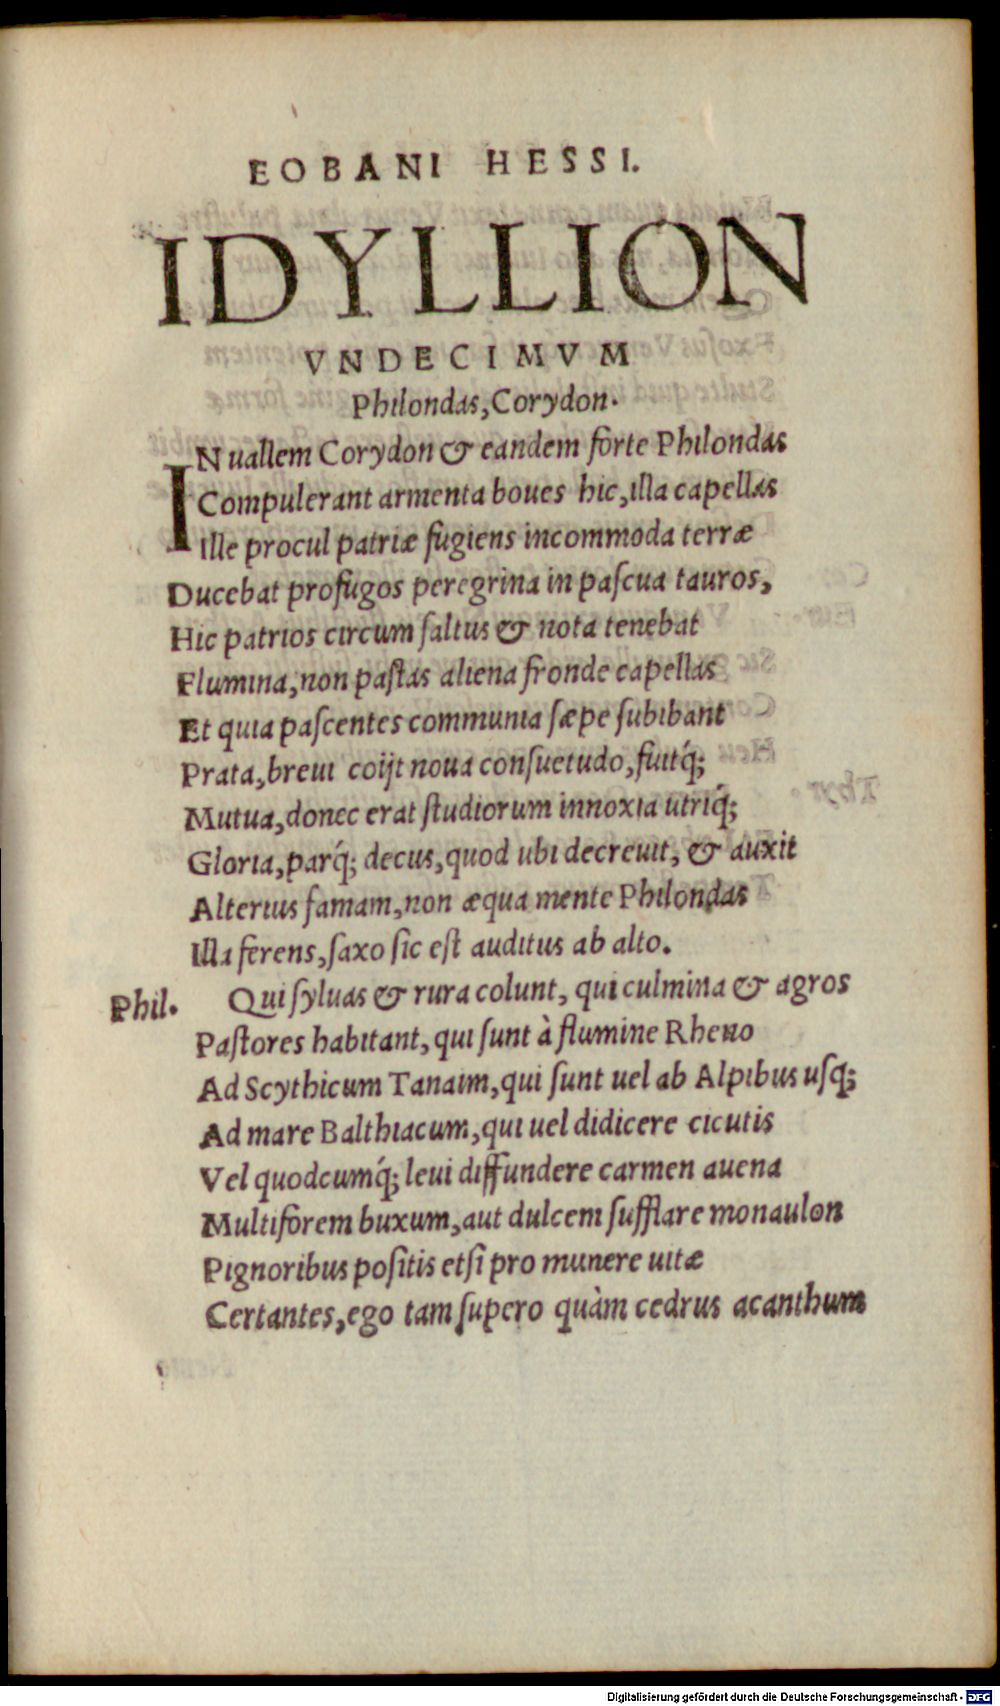 EOBANI HESSI.
IDYLLION
VNDECIMVM
Philondas, Corydon.
IN uallem Corydon & eandem forte Philondas
Compulerant armenta boues hic, illa capellas
Ille procul patriæ fugiens incommoda terræ
Ducebat profugos peregrina in paſcua tauros,
Hic patrios circum ſaltus & nota tenebat
Flumina, non paſtas aliena fronde capellas
Et quia paſcentes communia ſæpe ſubibant
Prata, breui coijt noua conſuetudo, fuitq́;
Mutua, donec erat ſtudiorum innoxia utriq́;
Gloria, parq́; decus, quod ubi decreuit, & auxit
Alterius famam, non æqua mente Philondas
Illa ferens, ſaxo ſic eſt auditus ab alto.
Phil. Qui ſyluas & rura colunt, qui culmina & agros
Paſtores habitant, qui ſunt à flumine Rheno
Ad Scythicum Tanaim, qui ſunt uel ab Alpibus uſq;
Ad mare Balthiacum, qui uel didicere cicutis
Vel quodcumq́; leui diffundere carmen auena
Multiforem buxum, aut dulcem ſufflare monaulon
Pignoribus poſitis etſi pro munere uitæ
Certantes, ego tam ſupero quàm cedrus acanthum
Digitalisierung gefördert durch die Deutsche Forschungsgemeinschaft - DFG